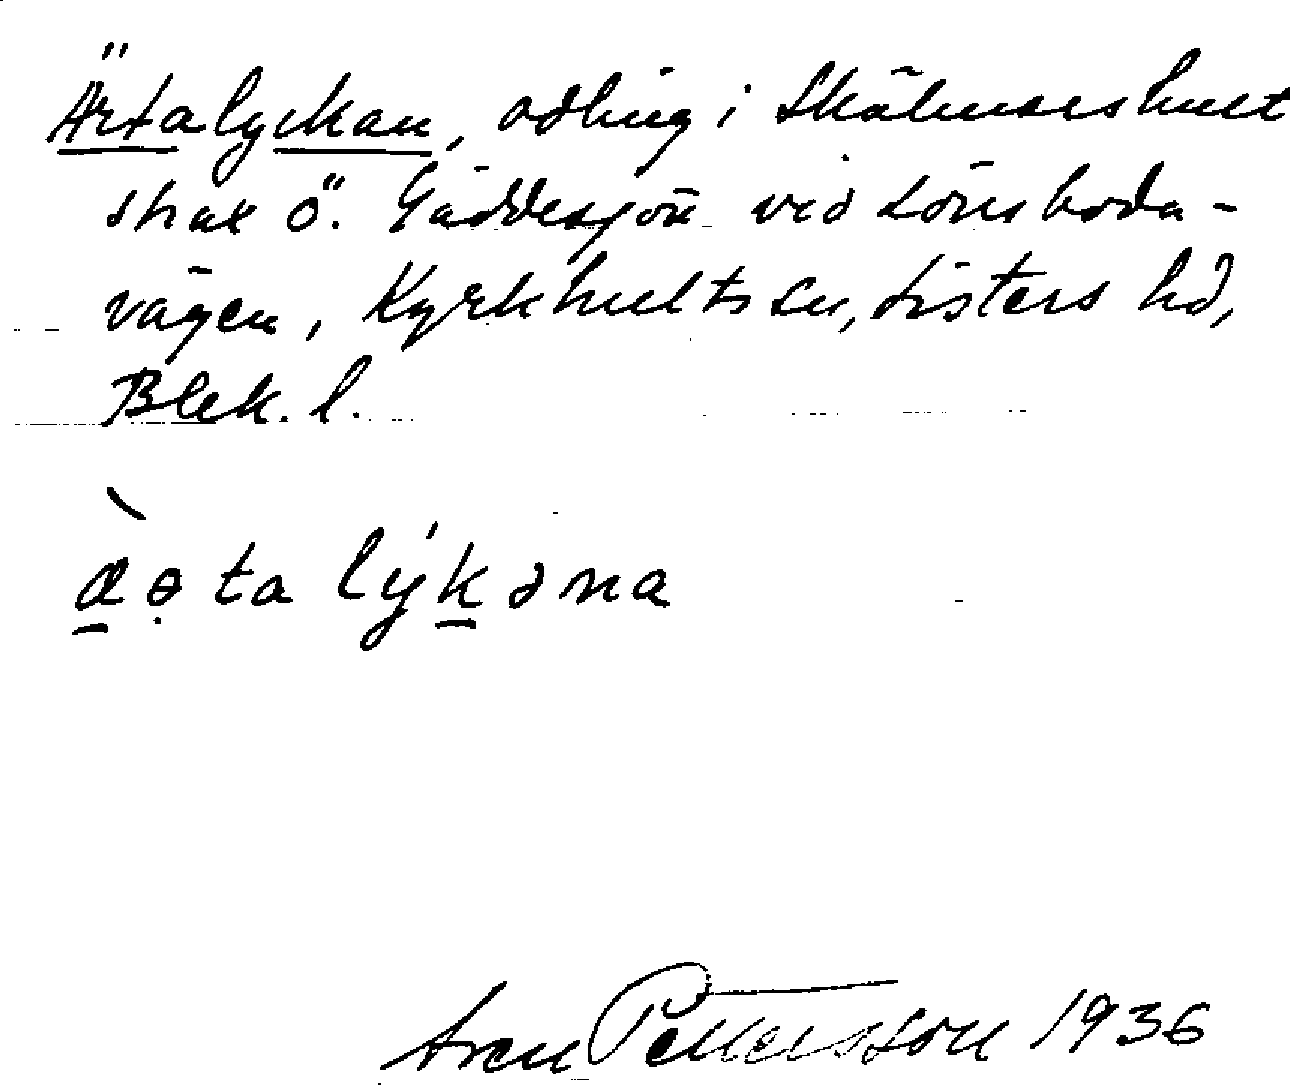 Ärtalyckan, odling i Skälmershult
strax ö. Gäddesjön vid Lönsboda-
vägen, Kyrkhults sn, Listers hd,
Blek. l.
æɘta lýkəna
Pettersson 1936